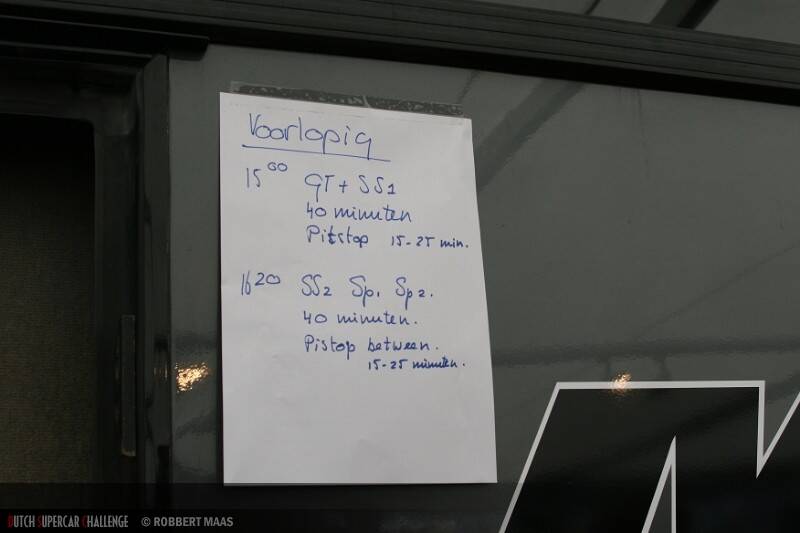 Voorlopig
15⁰⁰ GT + SS1
40 minuten
Pitstop 15-25 min.
16²⁰ SS2 Sp1 Sp2.
40 minuten.
Pistop between.
15-25 minuten.
DUTCH SUPERCAR CHALLENGE © ROBBERT MAAS